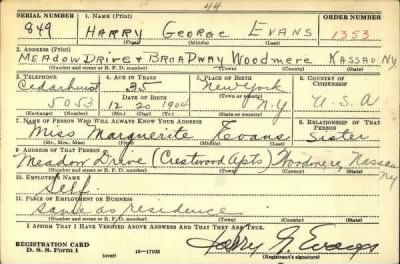 44
SERIAL NUMBER 1. NAME (Print) ORDER NUMBER
849 HARRY George EVANS 1353
(First) (Middle) (Last)
2. ADDRESS (Print)
MEADOW DRIVE & BROADWAY Woodmere NASSAU NY
(Number and street or R. F. D. number) (Town) (County) (State)
3. TELEPHONE 4. AGE IN YEARS 5. PLACE OF BIRTH 6. COUNTRY OF CITIZENSHIP
Cedarhurst 35 New York
DATE OF BIRTH (Town or county)
5053 12 20 1904 N.Y U.S.A
(Exchange) (Number) (Mo.) (Day) (Yr.) (State or country)
7. NAME OF PERSON WHO WILL ALWAYS KNOW YOUR ADDRESS 8. RELATIONSHIP OF THAT PERSON
Miss Marguerite Evans Sister
(Mr., Mrs., Miss) (First) (Middle) (Last)
9. ADDRESS OF THAT PERSON
Meadow Drive (Crestwood Apts) Woodmere Nassau NY
(Number and street or R. F. D. number) (Town) (County) (State)
10. EMPLOYER'S NAME
Self.
11. PLACE OF EMPLOYMENT OR BUSINESS
Same as residence
(Number and street or R. F. D. number) (Town) (County) (State)
I AFFIRM THAT I HAVE VERIFIED ABOVE ANSWERS AND THAT THEY ARE TRUE.
REGISTRATION CARD
D. S. S. Form 1 (over) 16—17105 Harry G. Evans
(Registrant's signature)